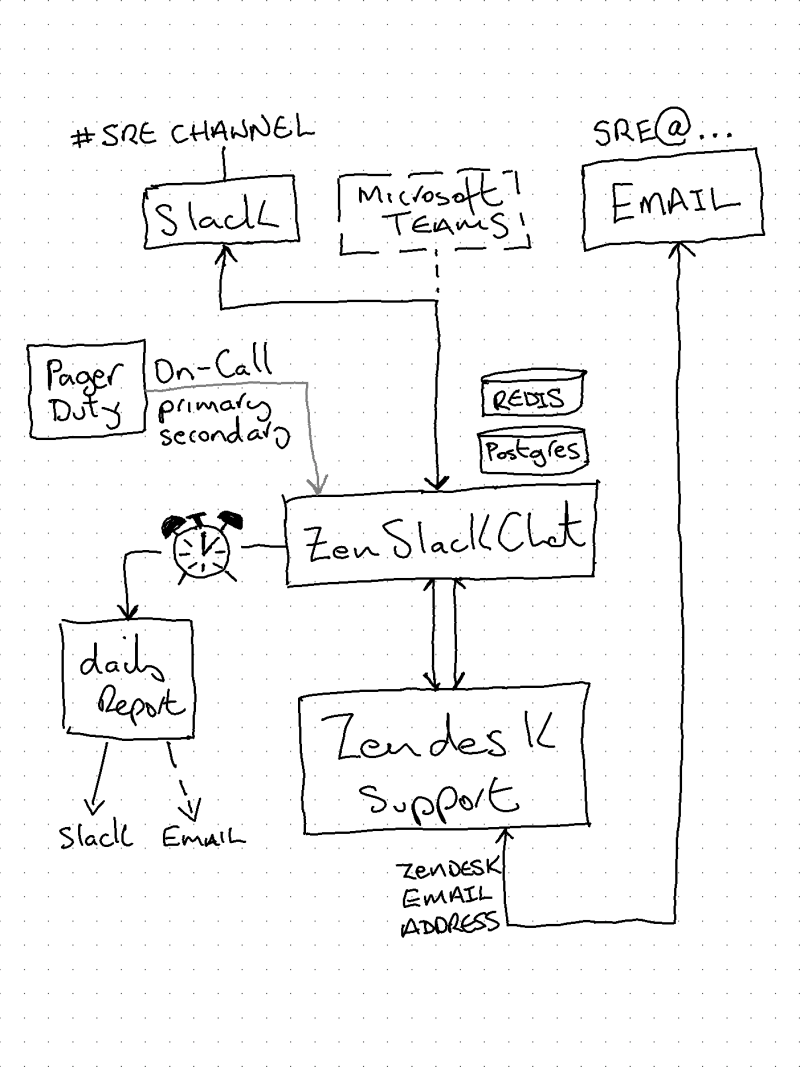 # SRE CHANNEL
SRE@...
Slack
Microsoft
TEAMS
EMAIL
Pager
Duty
On-Call
primary
secondary
REDIS
Postgres
Zen Slack Chat
daily
Report
Slack
EMAIL
Zendesk
Support
ZENDESK
EMAIL
ADDRESS